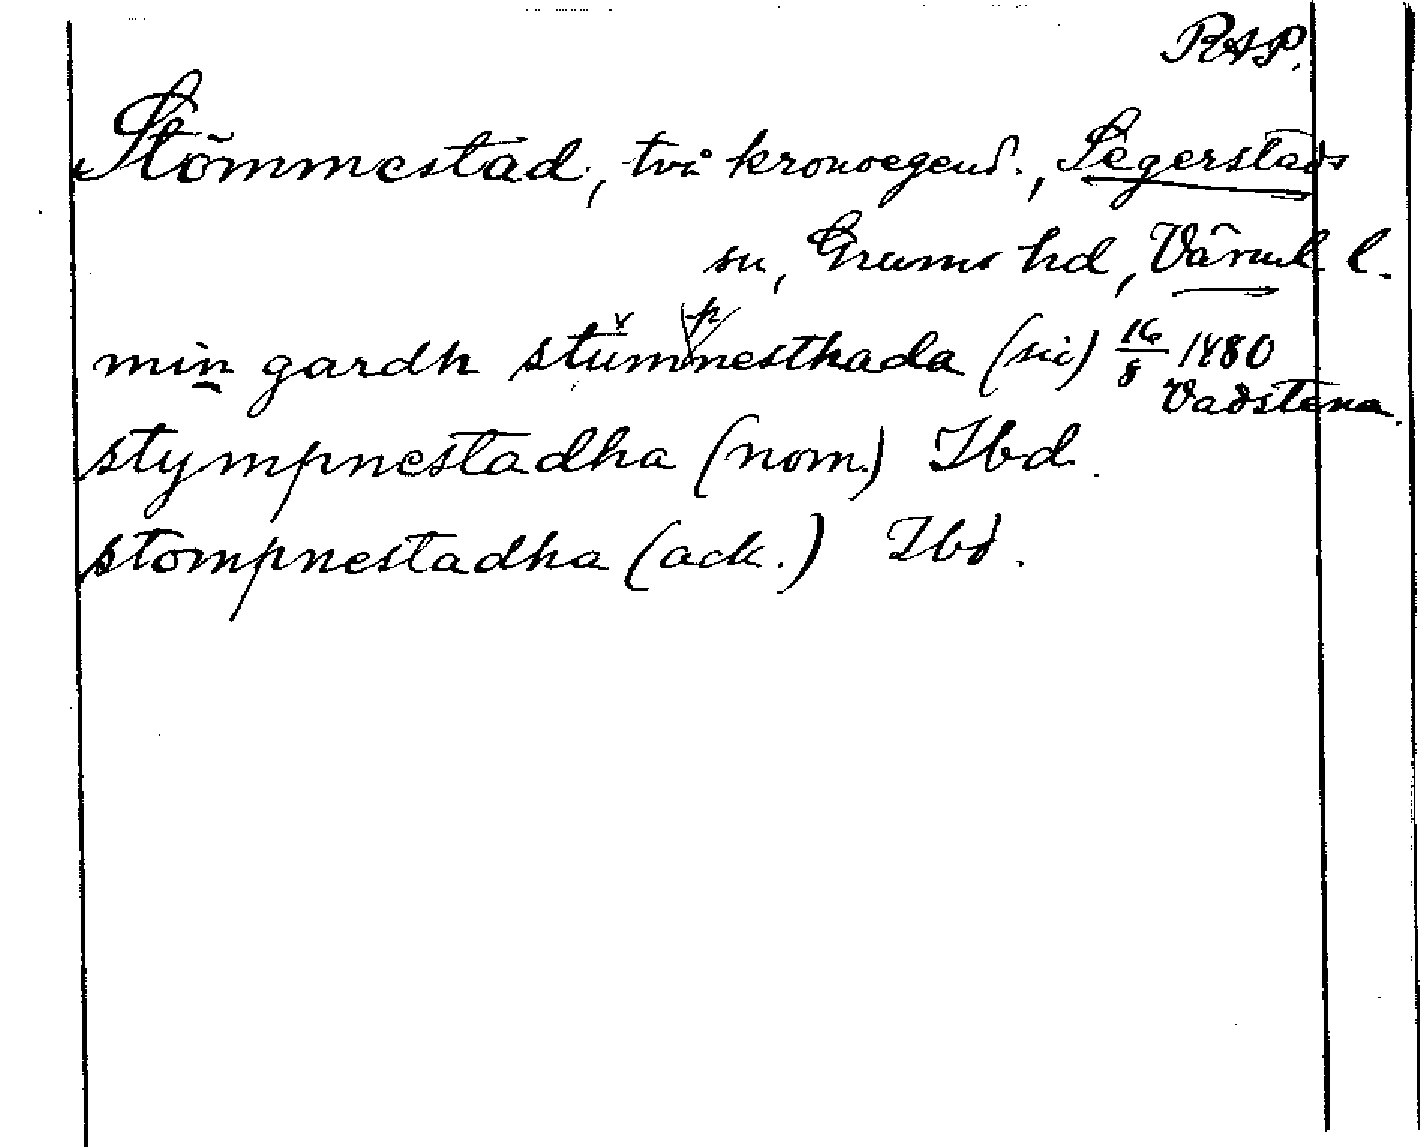 RAP.
Stömmestad, två kronoegend., Segerstads
sn, Grums hd, Värml. l.
min gardh stumpnesthada (sic) 16/8 1480
Vadstena.
stympnestadha (nom.) Ibd.
stompnestadha (ack.) Ibd.